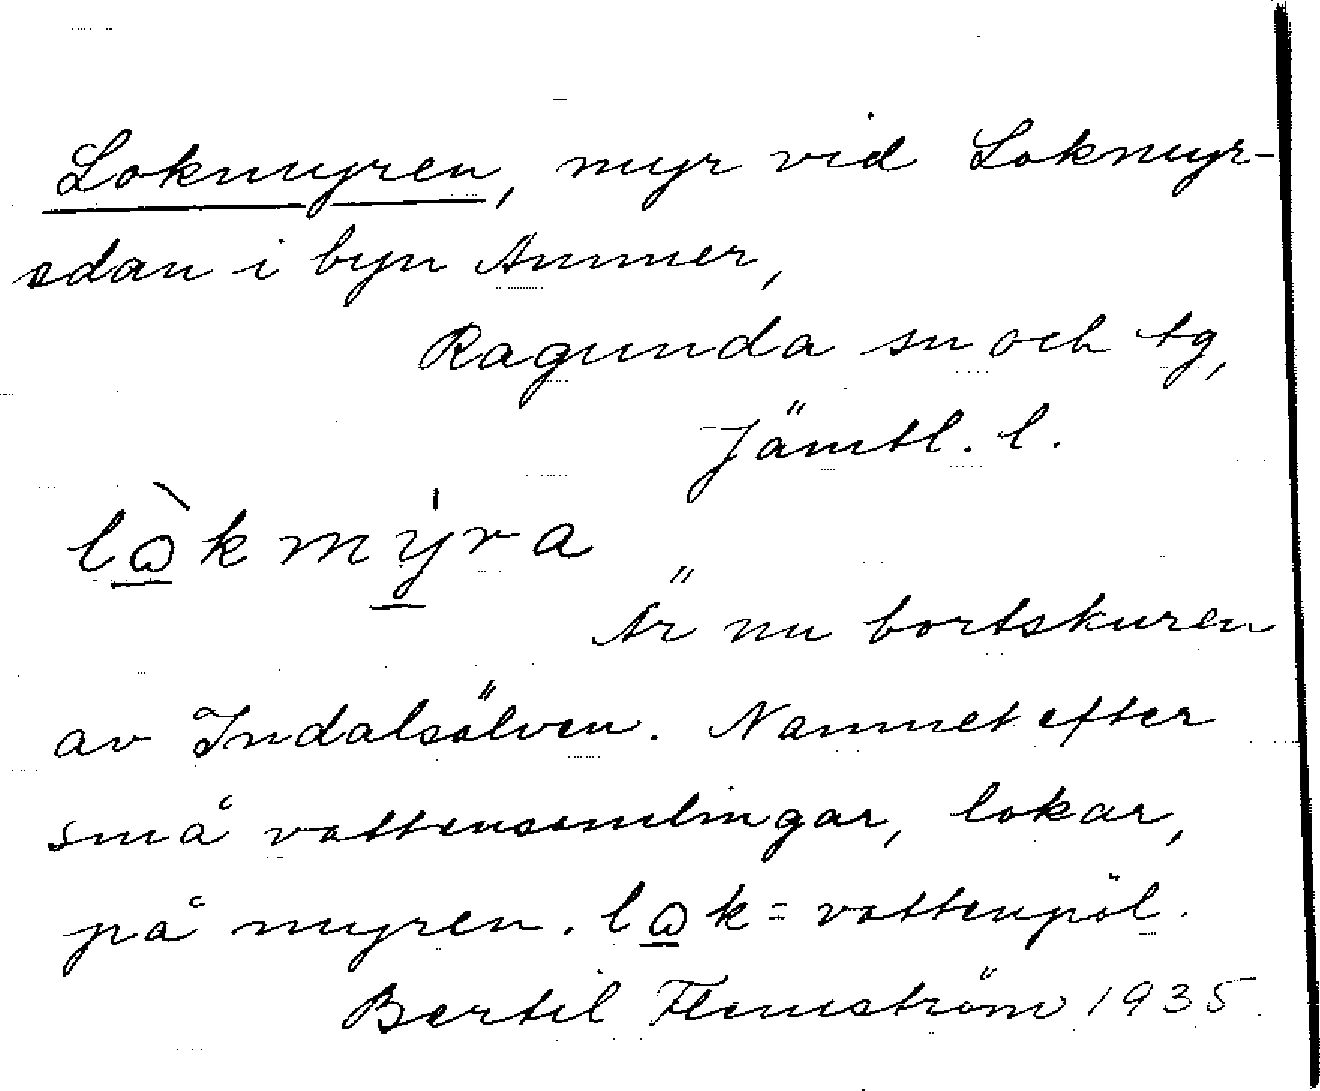 Lokmyren, myr vid Lokmyr-
sdan i byn Ammer,
Ragunda sn och tg,
Jämtl. l.
lòkmýra
Är nu bortskuren
av Indalsälven. Namnet efter
små vattensamlingar, lokar,
på myren. lok = vattenpöl.
Bertil Flemström 1935.